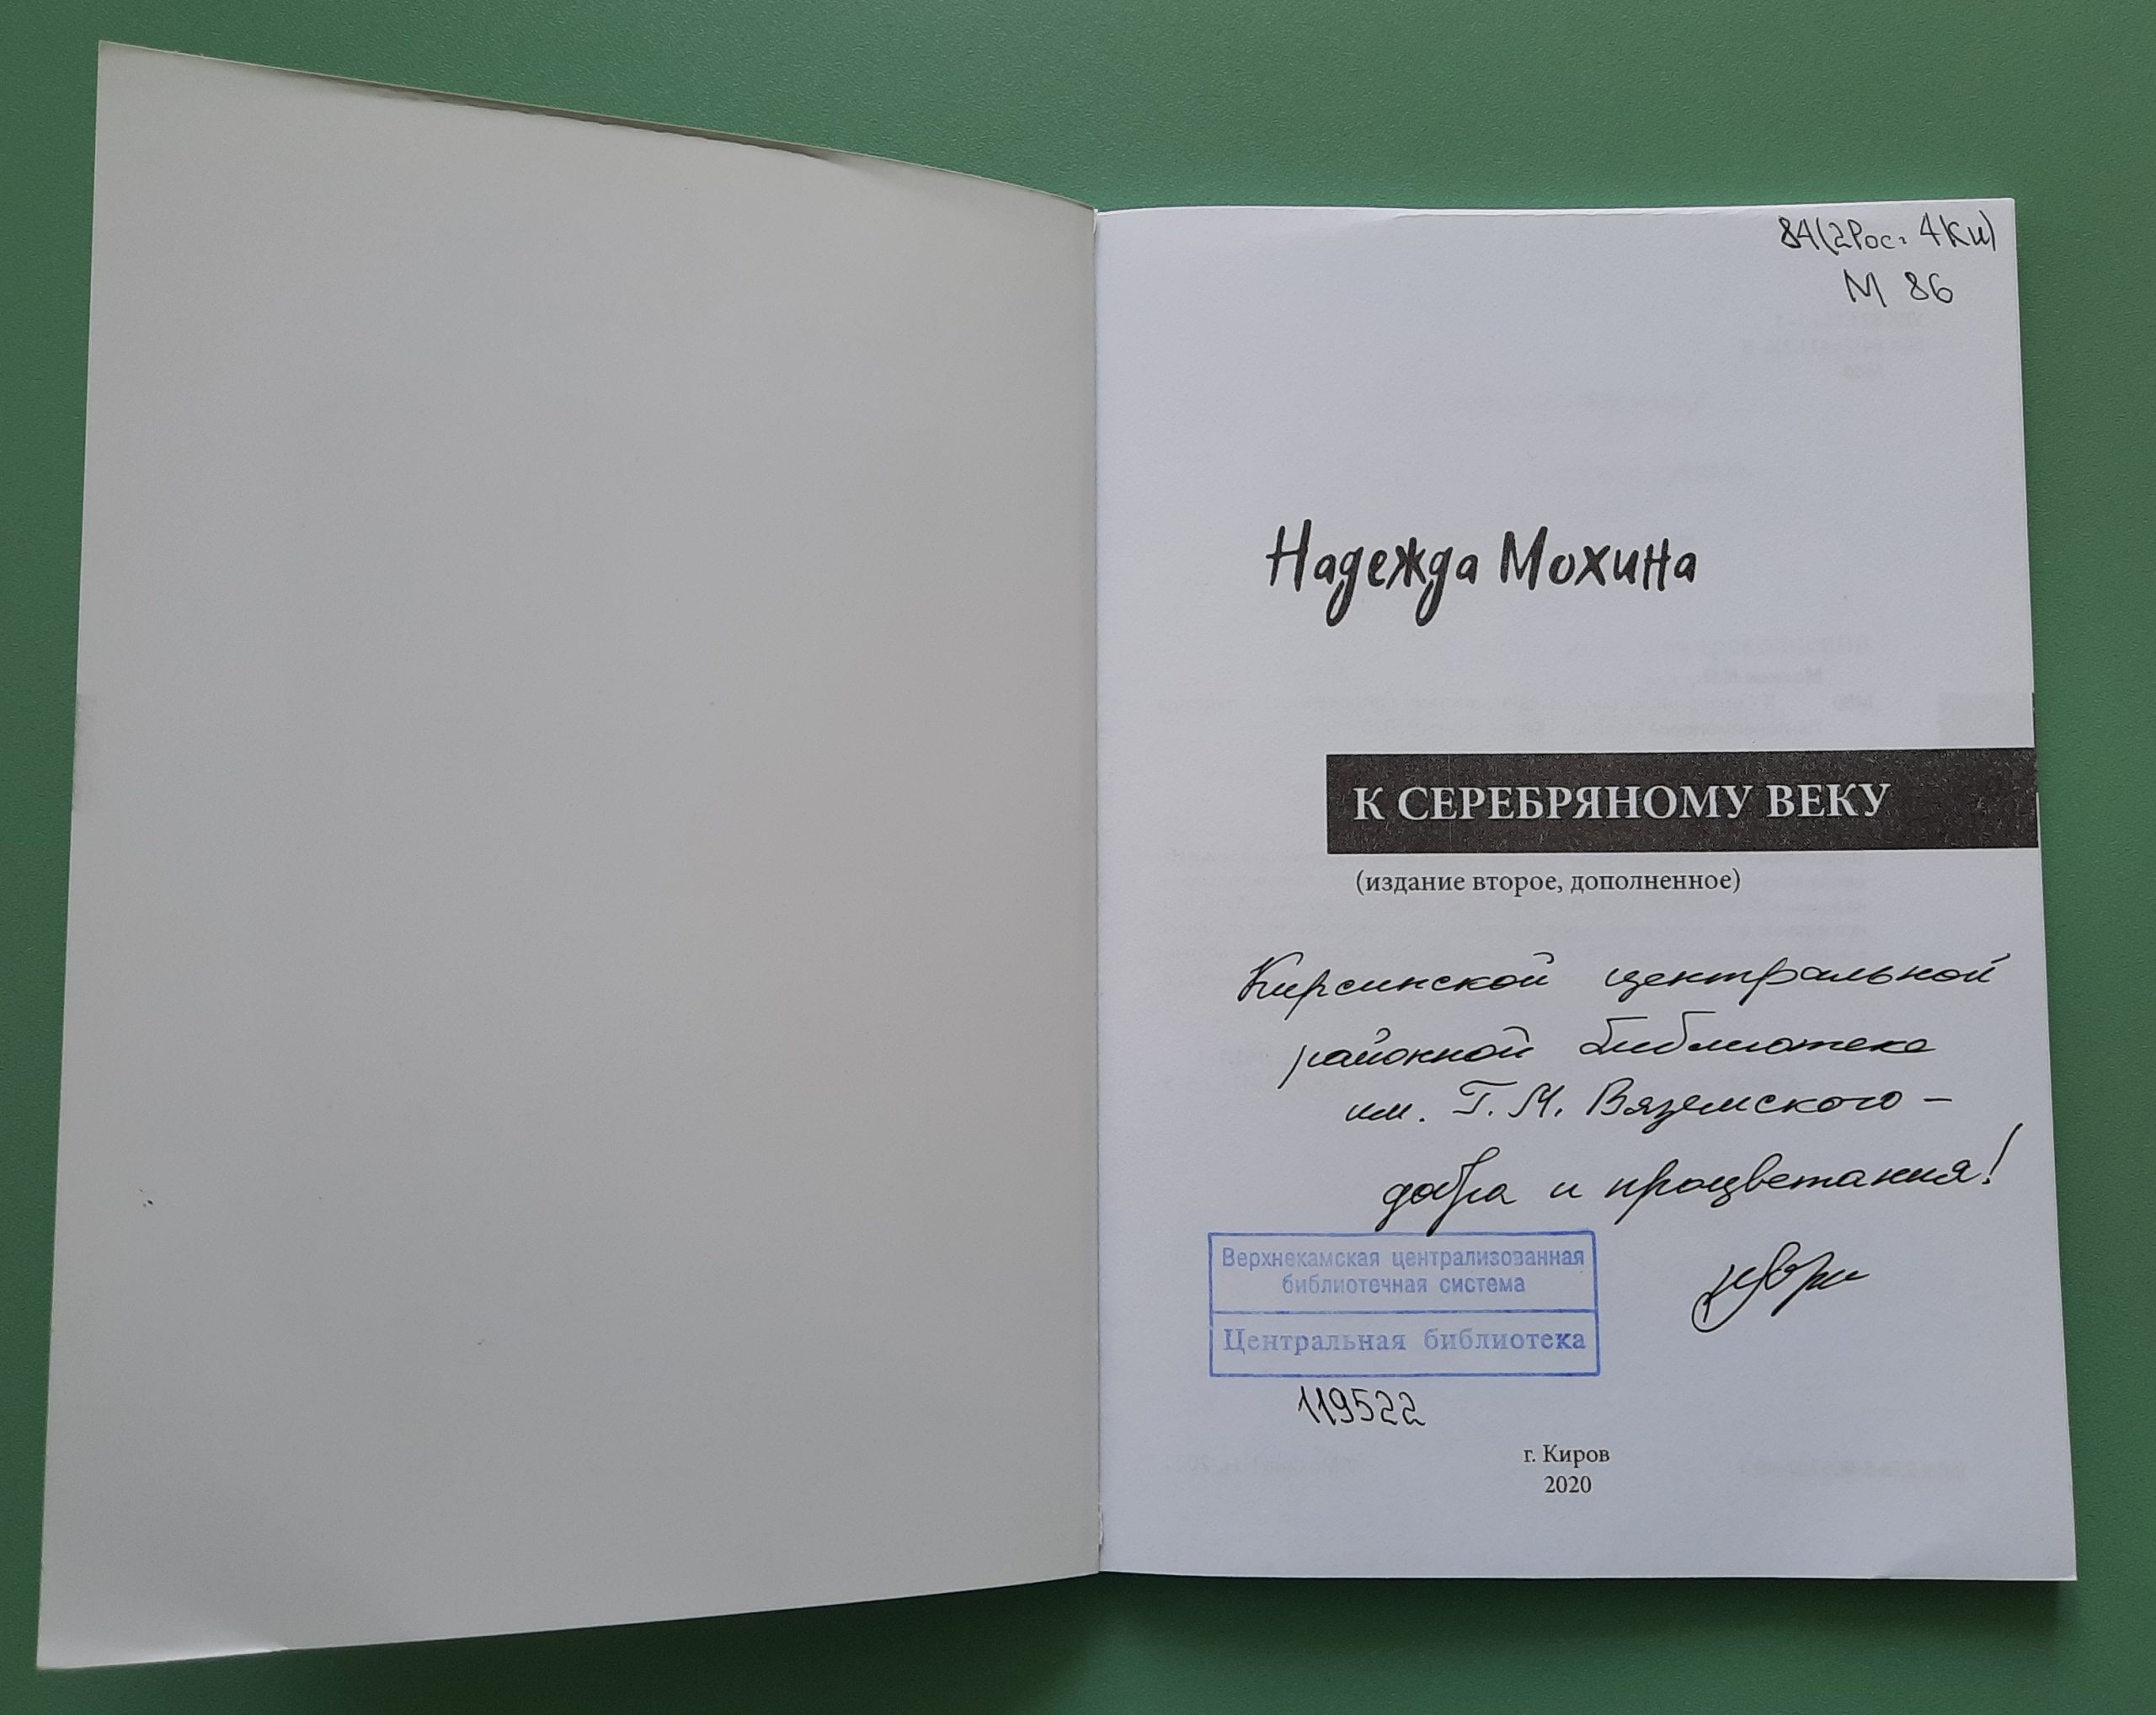 84(2Рос-4Ки)
М 86
Надежда Мохина
К СЕРЕБРЯНОМУ ВЕКУ
(издание второе, дополненное)
Кирсинской центральной
районной библиотеке
им. Г. М. Вяземского –
добра и процветания!
Верхнекамская централизованная
библиотечная система
Центральная библиотека
119522
г. Киров
2020